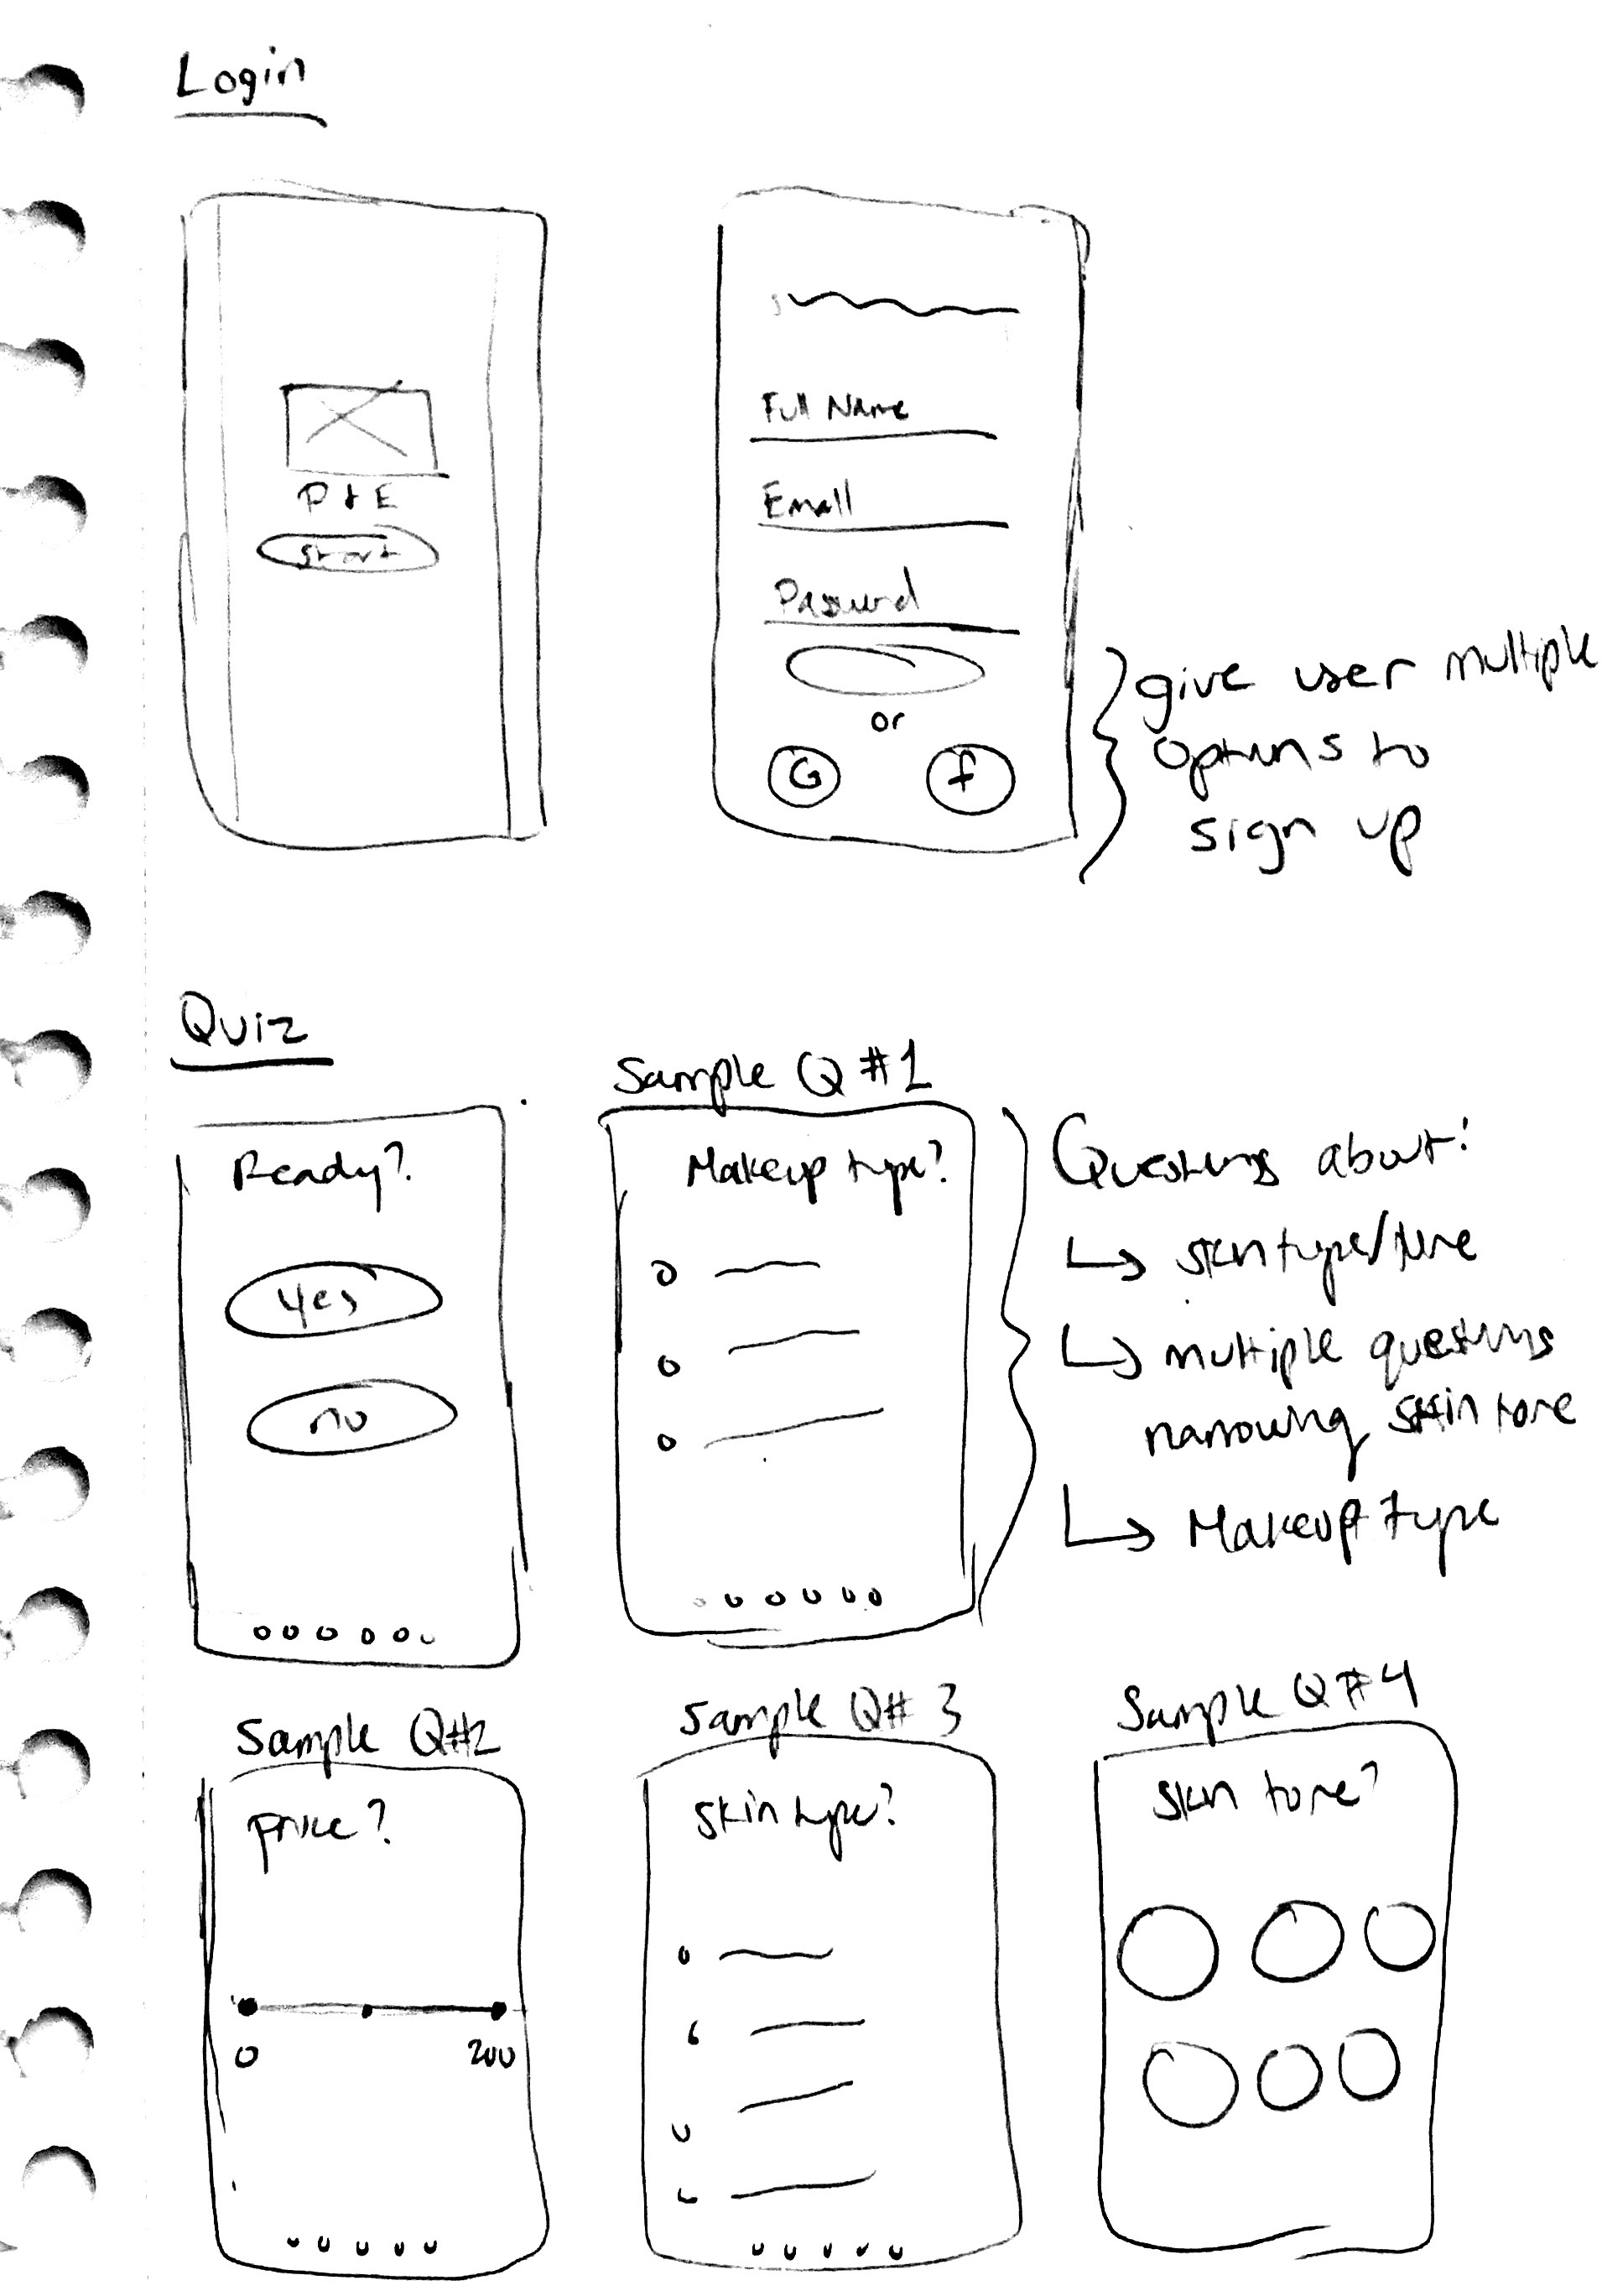 Login
P & E
start
Full Name
Email
Password
or
G f
give user multiple
options to
sign up
Quiz
Ready?
yes
no
Sample Q #1
Makeup type?
Questions about:
↳ skin type/tone
↳ multiple questions
narrowing skin tone
↳ Makeup type
Sample Q#2
price?
0 200
Sample Q# 3
skin type?
Sample Q #4
skin tone?